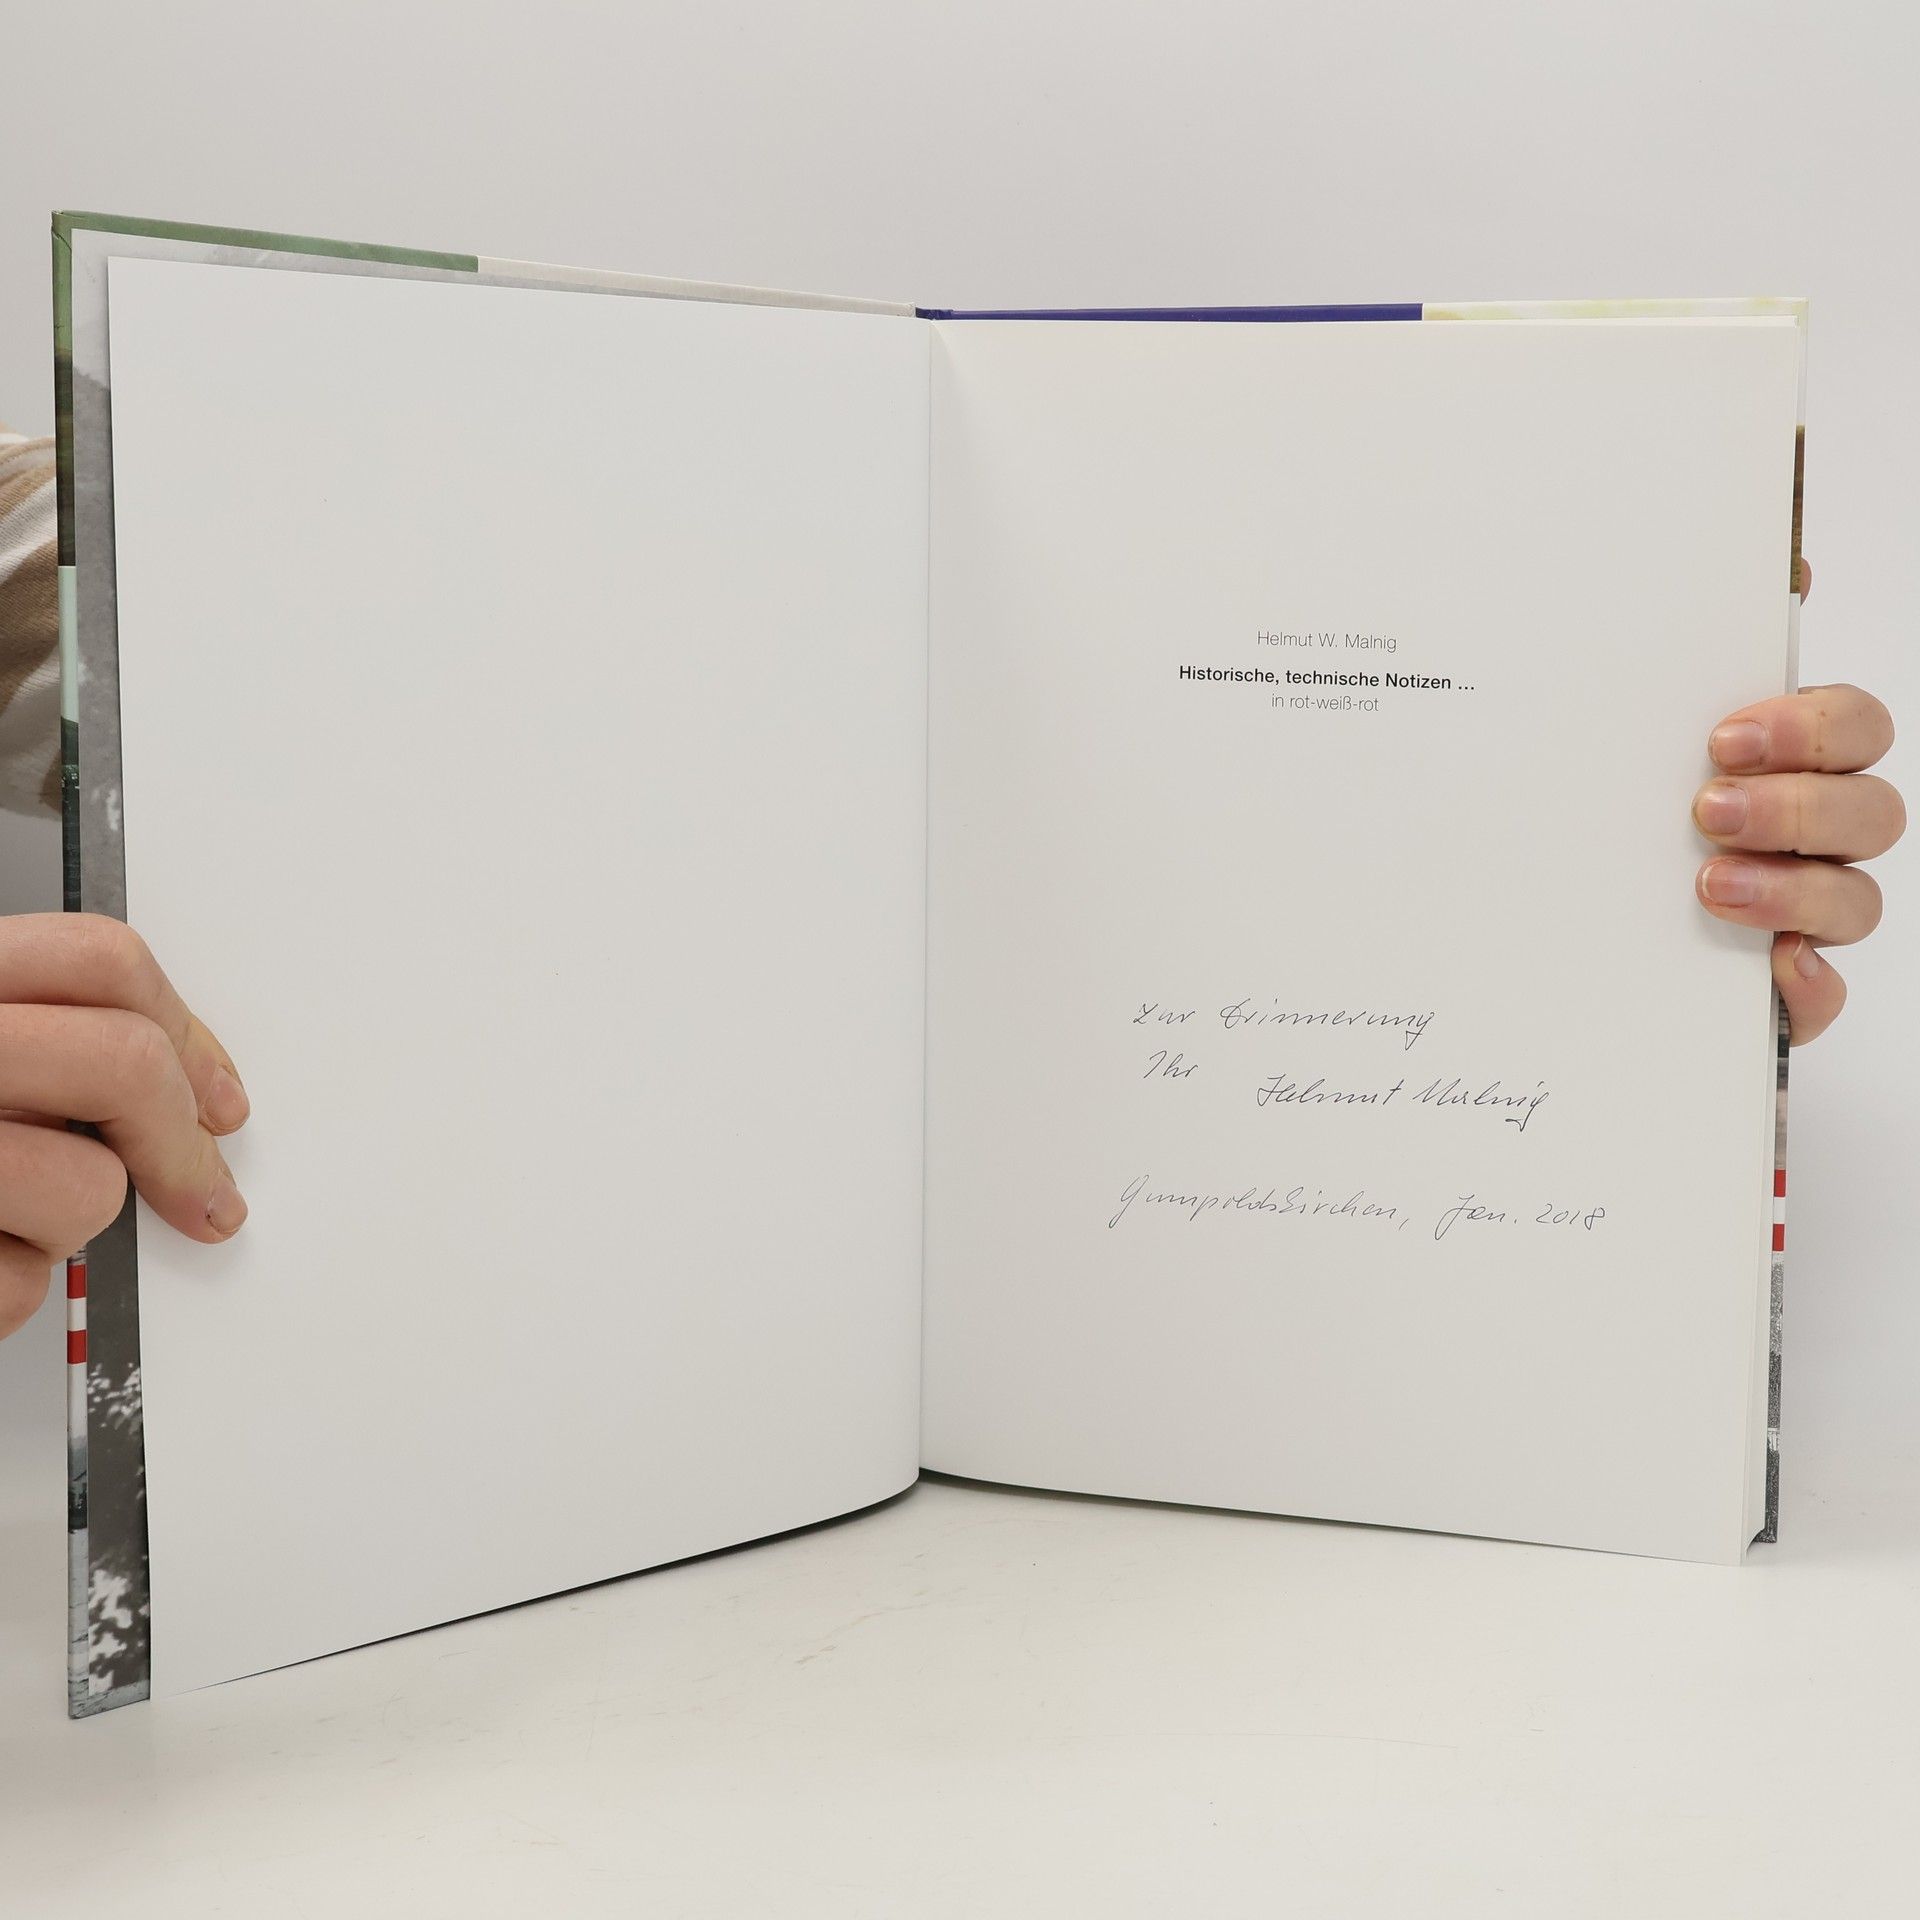 Helmut W. Malnig
Historische, technische Notizen ...
in rot-weiß-rot
Zur Erinnerung
Ihr Helmut Malnig
Gumpoldskirchen, Jan. 2018